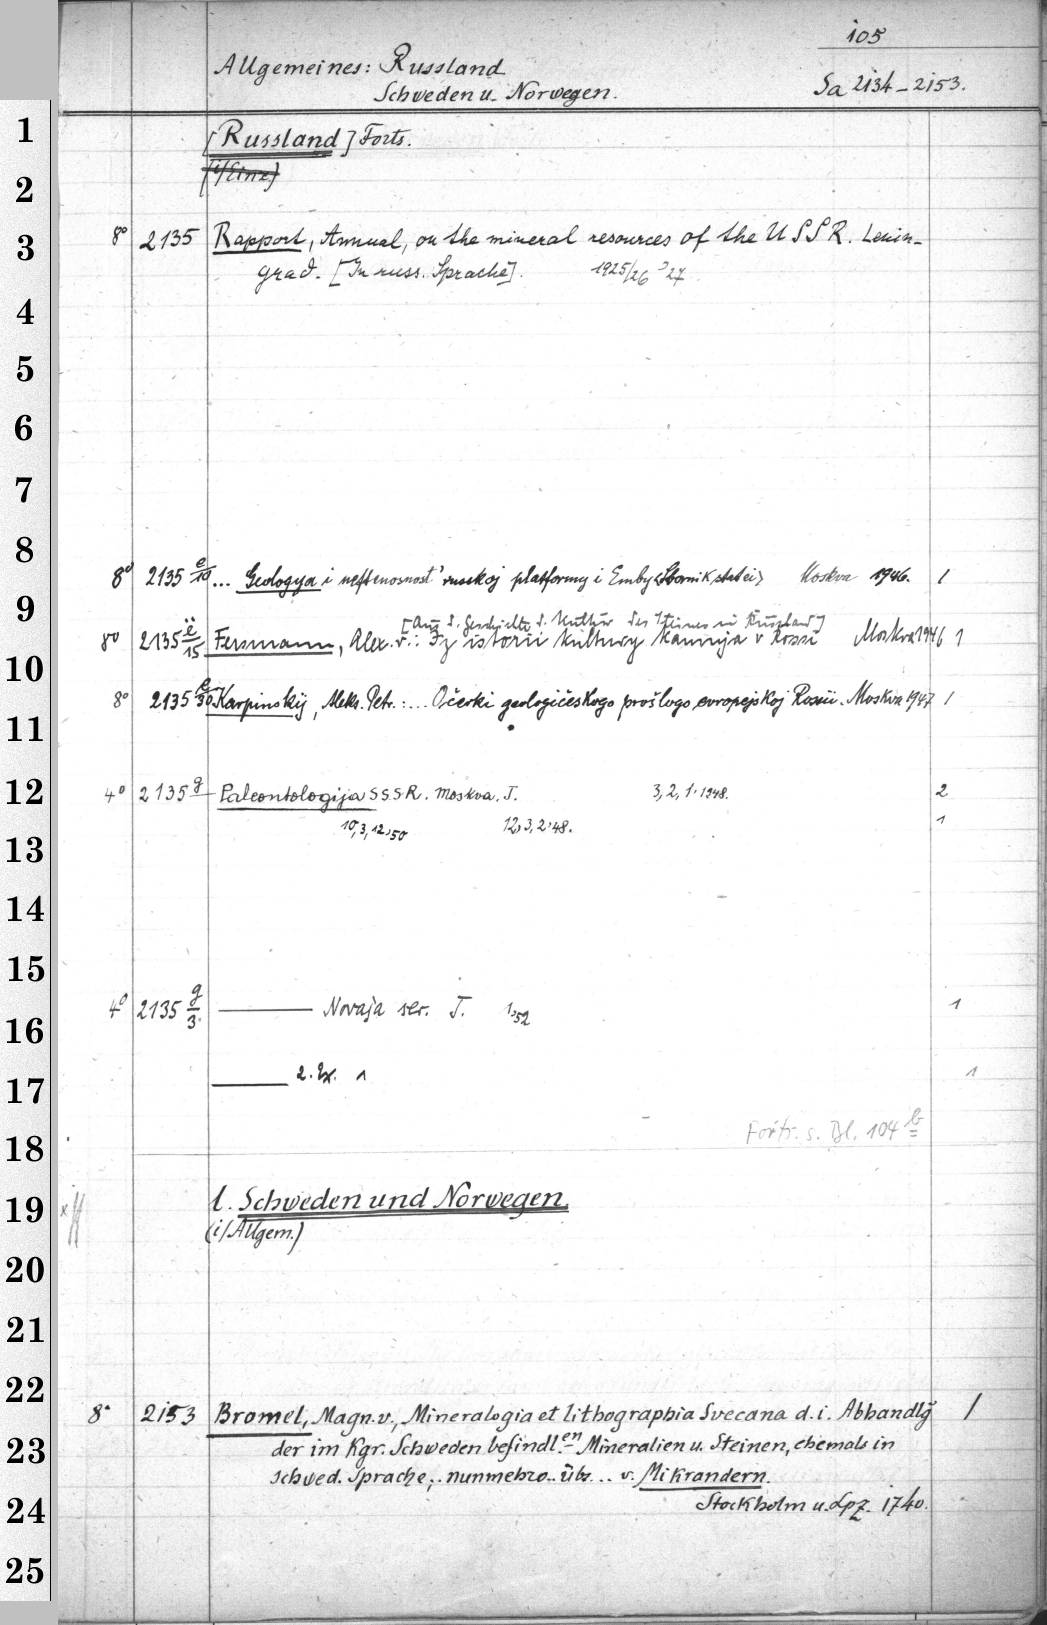 105
Allgemeines: Russland
Schweden u. Norwegen.
Sa 2134-2153.
1
[Russland] Forts.
(i/Einz.)
2
3
8° 2135 Rapport, Annual, on the mineral resources of the USSR. Lenin-
grad. [In russ. Sprache]. 1925/26, 27
4
5
6
7
8
8° 2135 e/10 ... Geologya i neftenosnost' russkoj platformy i Emby <Sbornik statei> Moskva 1946. 1
9
[Aus d. Geschichte d. Kultur des Steines in Russland]
8° 2135 e/15 Fersmann, Alex. v.: Iz istorii kultury kamnja v Rossii Moskva 1946 1
10
8° 2135 e/30 Karpinskij, Aleks. Petr.: ... Očerki geologičeskogo prošlogo evropejskoj Rossii. Moskva 1947 1
11
12
4° 2135 g Paleontologija SSSR. Moskva. T. 3,2,1. 1948. 2
10,3,12,50 12,3,2,48. 1
13
14
15
4° 2135 g/3. ——— Novaja ser. T. 1,52 1
16
17
——— 2. Ex. 1 1
Forts. s. Bl. 104 b
18
19
l. Schweden und Norwegen.
(i/Allgem.)
20
21
22
8° 2153 Bromel, Magn. v., Mineralogia et lithographia Svecana d. i. Abhandlg
23
der im Kgr. Schweden befindl.en Mineralien u. Steinen, ehemals in
schwed. Sprache,.. nunmehro.. übs... v. Mikrandern.
1
24
Stockholm u. Lpz. 1740.
25